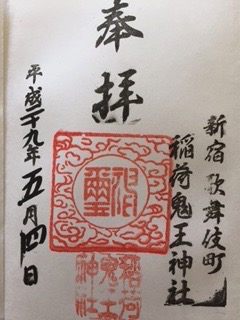 奉拝
新宿歌舞伎町
稲荷鬼王神社
平成二十九年五月四日
稲荷
鬼王
神社